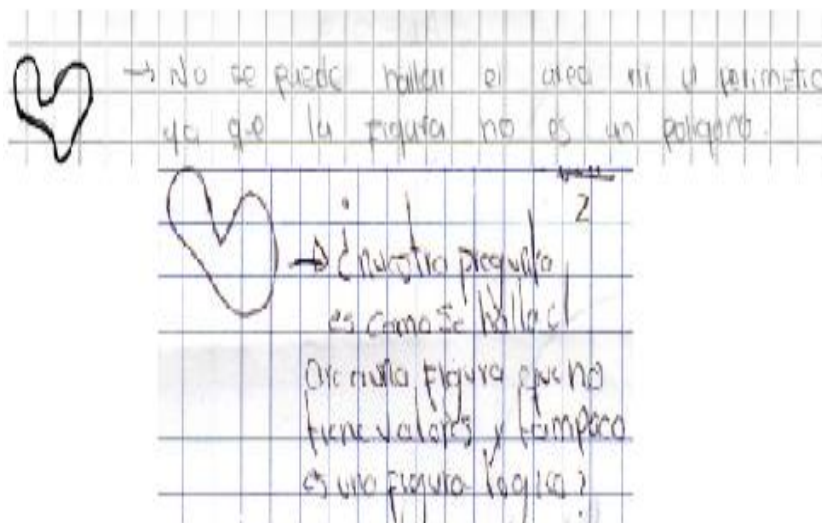 → No se puede hallar el area ni el perimetro
ya que la figura no es un poligono.
2
→ ¿nuestra pregunta
es como se halla el
area una figura que no
tiene valores y tampoco
es una figura logica?